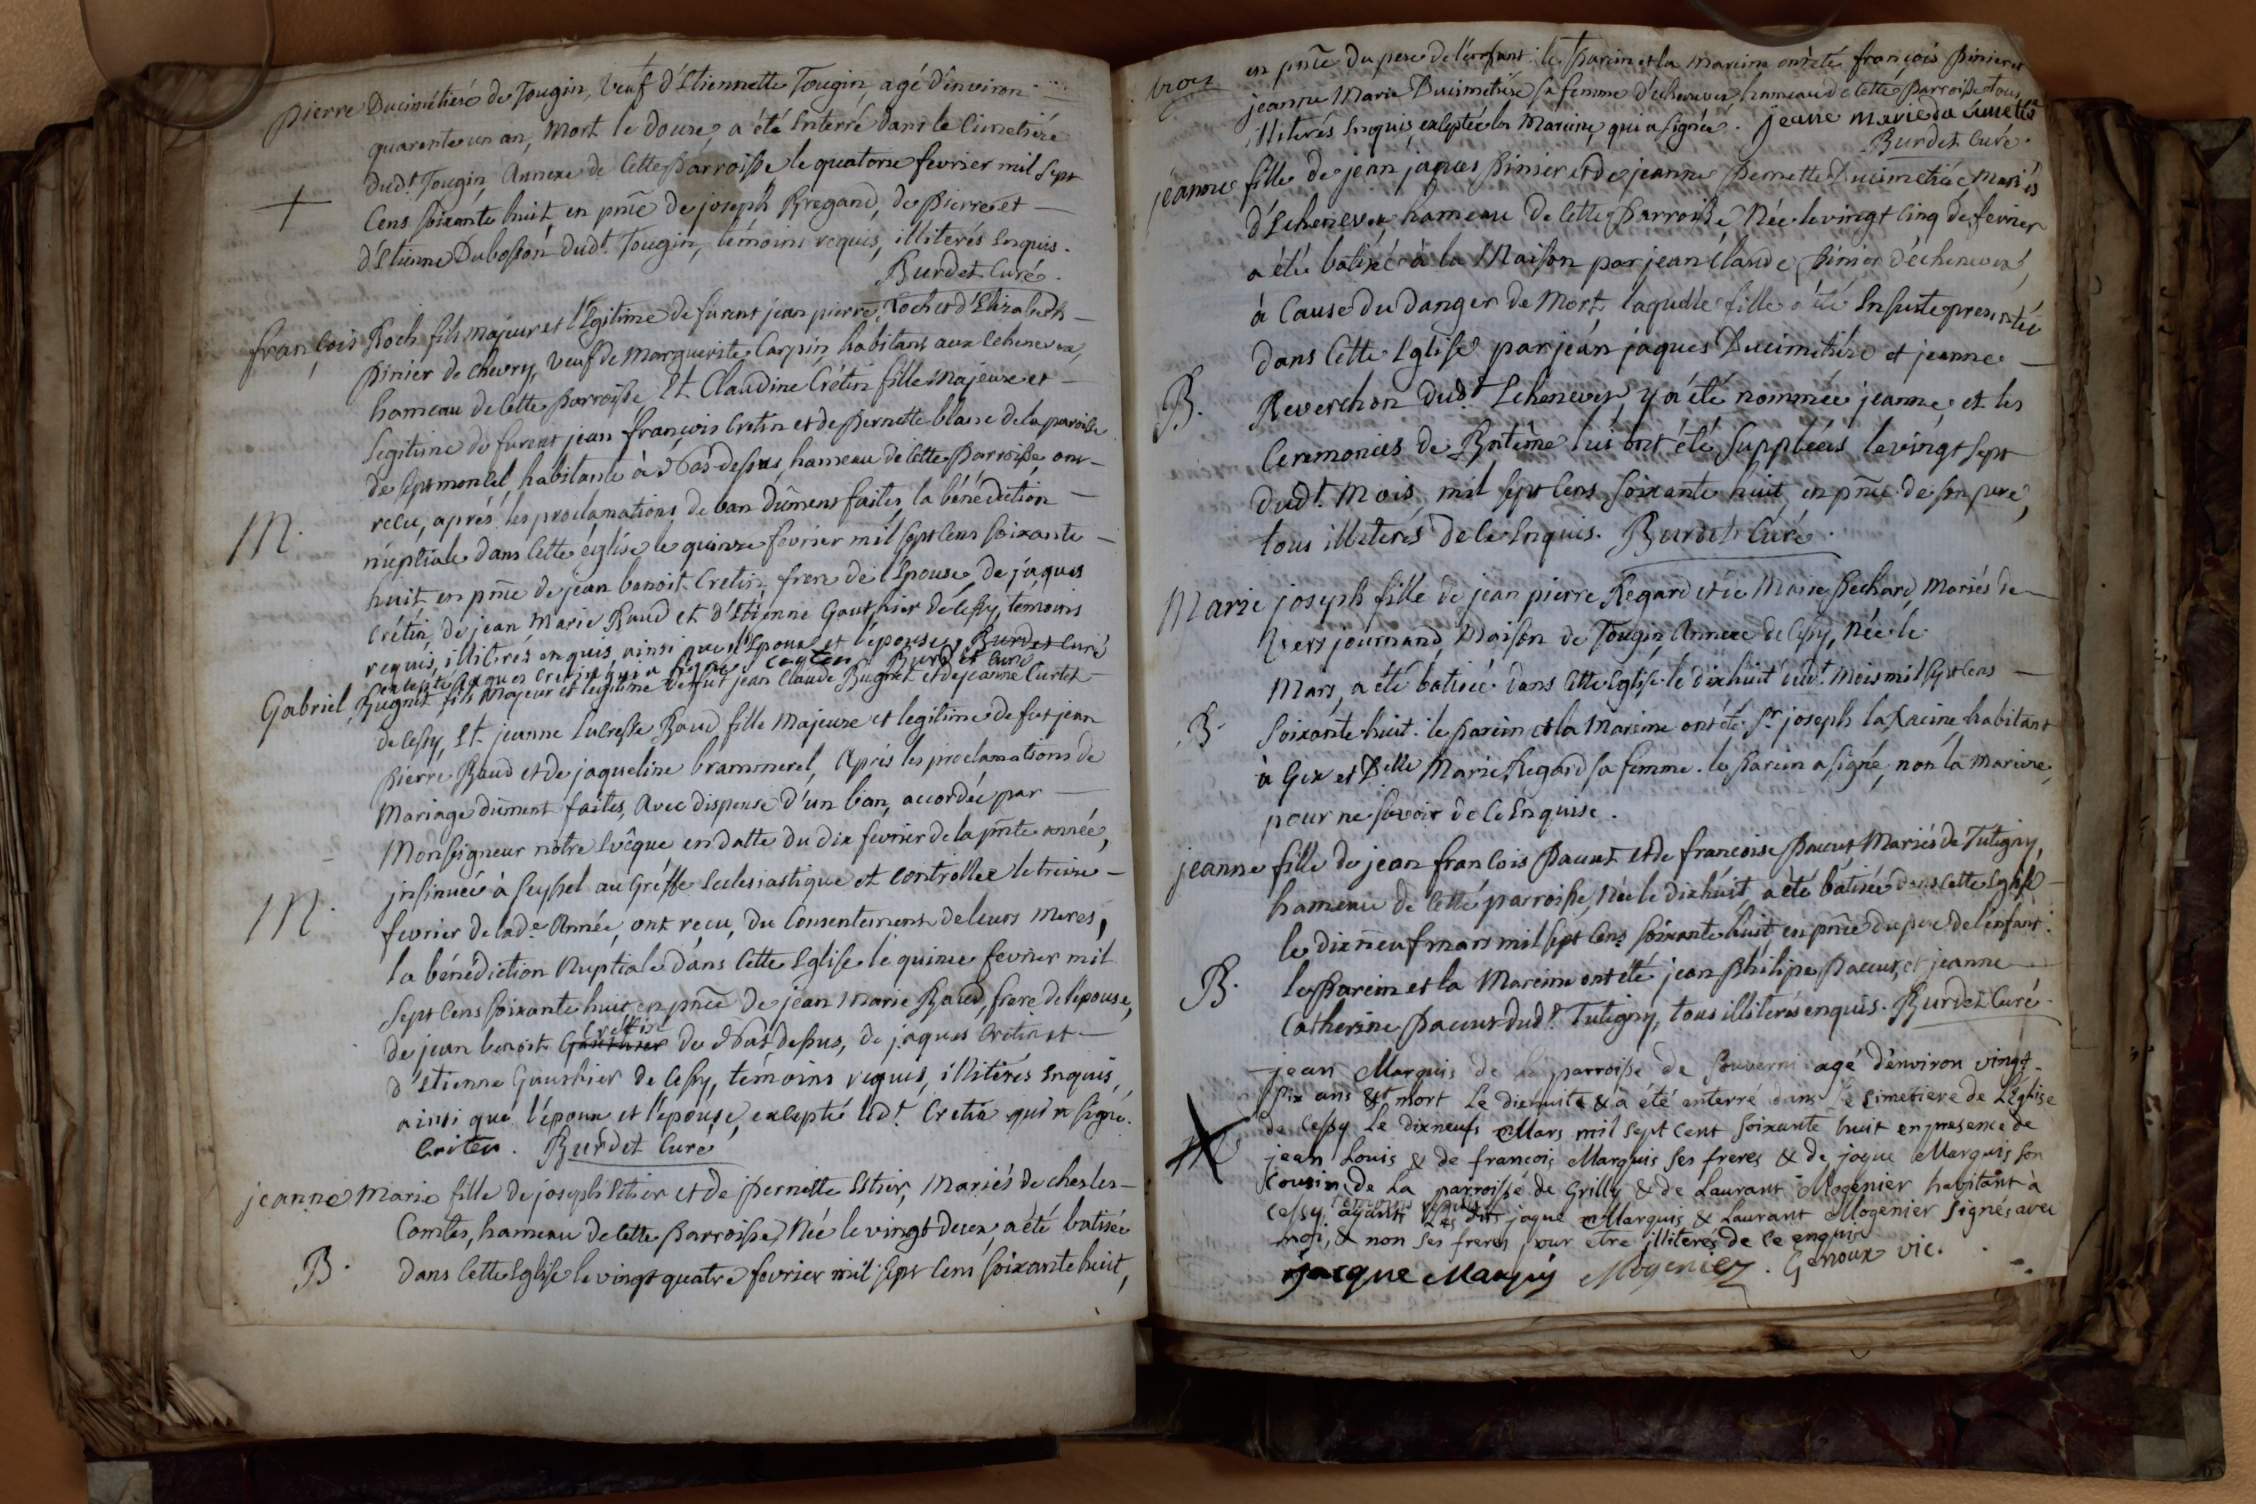 pierre Ducimétiere de Tougin, Veuf d'Etiennette Tougin, agé d'environ
quarente un an, Mort le douze, a été Enterré dans le Cimetiére
dud.t Tougin, Annexe de Cette parroisse le quatorze fevrier mil sept
Cens soixante huit, en pñce de joseph Bregand, de pierre et
d'Etienne Dubosson dud.t Tougin, témoins requis, illiterés Enquis.
Burdet Curé.
françois Roch fils majeur et légitime de furent jean pierre Roch et d'Elizabeth
pinier de Chevry, veuf de Marguerite Carpin habitant aux Echenevex,
hameau de Cette parroisse, Et Claudine Crétin fille Majeure et
legitime de furent jean françois Cretin et de pernette blanc de la paroisse
de septmoncel, habitante à Mas-dessus, hameau de Cette parroisse, ont
recu, aprés les proclamations de ban dûment faites, la bénédiction
nuptiale dans Cette église le quinze fevrier mil sept Cens soixante
huit, en pñce de jean benoit Cretin, frere de l'Epouse, de jaques
Crétin, de jean Marie Baud et d'Etienne Gauthier de Cessy, temoins
requis, illiterés enquis, ainsi que l'Epoux et l'épouse, Burdet Curé
excepté jaques Cretin qui a signé. Burdet Curé
M.
Gabriel Bugnet fils Majeur et legitime de fut jean Claude Bugnet et de jeanne Curtet
de Cessy, Et jeanne Lucresse Baud fille Majeure et legitime de fut jean
pierre Baud et de jaqueline brammerel, Après les proclamations de
Mariage dûment faites, Avec dispense d'un ban, accordée par
Monseigneur nôtre Evêque en datte du dix fevrier de la pñte année,
insinuée à Seyssel au Gréffe Ecclesiastique et controllée le treize
fevrier de lad.e Année, ont reçu, du Consentement de leurs meres,
la bénédiction Nuptiale dans Cette Eglise le quinze fevrier mil
sept Cens soixante huit en pñce de jean Marie Baud, frere de l'epouse,
Crétin
de jean benoit Gauthier de Mas dessus, de jaques Crétin et
d'Etienne Gauthier de Cessy, témoins requis, illitérés Enquis,
ainsi que l'époux et l'epouse, excepté led.t Cretin qui a signé.
Criten. Burdet Curé
M.
jeanne Marie fille de joseph Estier et de pernette Estier, Mariés de chez les
Comtes, hameau de Cette parroisse, Née le vingt deux, a été batisée
B.
dans Cette Eglise le vingt quatre fevrier mil sept Cens soixante huit,
en pñce du pere de l'enfant: le parein et la mareine ont été françois pinier et
jeanne Marie Ducimetiére sa femme d'echenevex hameau de Cette parroisse, tous
illiterés Enquis, exceptée la Mareine qui a signée. jeane marie du
Burdet Curé.
jeanne fille de jean jaques pinier et de jeanne pernette Ducimetiére, Mariés
d'Echenevex, hameau de Cette parroisse, Née le vingt Cinq de fevrier
a été batisée à la Maison par jean Claude pinier d'échenevex,
à Cause du danger de Mort, laquelle fille a été Ensuite presentée
dans Cette Eglise par jean jaques Ducimetiére et jeanne
B.
Reverchon dud.t Echenevex, y a été nommée jeanne, et les
Ceremonies de Batême lui ont été suppléées le vingt sept
dud.t Mois, mil sept Cens soixante huit, en pñce de son pere,
tous illiterés de ce Enquis. Burdet Curé.
Marie joseph fille de jean pierre Regard et de Marie Pechard, Mariés de
Vers journand, Maison de Tougin, Annexe de Cessy, Née le
Mars, a été batisée dans Cette Eglise le dix huit dud.t Mois mil sept Cens
B.
soixante huit: le parein et la Mareine ont été S.r joseph la Racine, habitant
à Gex et D.elle Marie Regard sa femme. le parein a signé, non la mareine,
pour ne savoir de ce Enquise.
jeanne fille de jean françois pacut et de francoise pacut, Mariés de Tutigny,
hameau de Cette parroisse, Née le dix huit, a été batisée dans Cette Eglise
le dix neuf mars mil sept Cens soixante huit, en pñce du pere de l'enfant:
B.
le parein et la Mareine ont été jean philipe pacut, et jeanne
Catherine pacut dud.t Tutigny, tous illitérés enquis. Burdet Curé.
jean Marquis de la parroisse de Sauverni agé d'environ vingt
six ans est mort le diehuite & a été enterré dans le cimetiere de L'Eglise
de Cessy le dixneufs Mars mil sept cent soixante huit en presence de
jean Louis & de francois Marquis ses freres & de jaque Marquis son
Cousin de la parroisse de Grilly & de Laurant Mogenier habitant à
temoins requis
Cessy. ayants Les dits jaque Marquis & Laurant Mogenier signés avec
moi, & non ses freres pour etre illiterés de ce enquis
jacque Marquis Mogenier. Genoux vic.